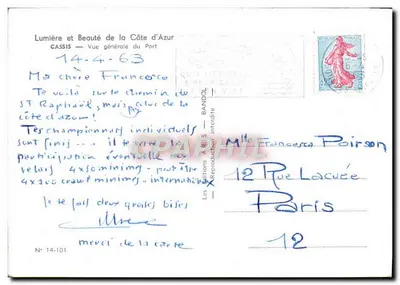 Lumière et Beauté de la Côte d'Azur
CASSIS — Vue générale du Port
14-4-63
Ma chère Francesca
Te voilà sur le chemin de
St Raphaël, mais plus de la
côte d'azur!
Tes championnats individuels
sont finis... il te reste la
participation éventuelle aux
relais 4x50 minimes - peut être
4x100 crawl minimes - international
Je te fais deux grosses bises
merci de la carte
N° 14-101
Les Editions BANDOL
Reproduction interdite
Mlle Francesca Poirson
12 Rue Lacuée
Paris
12